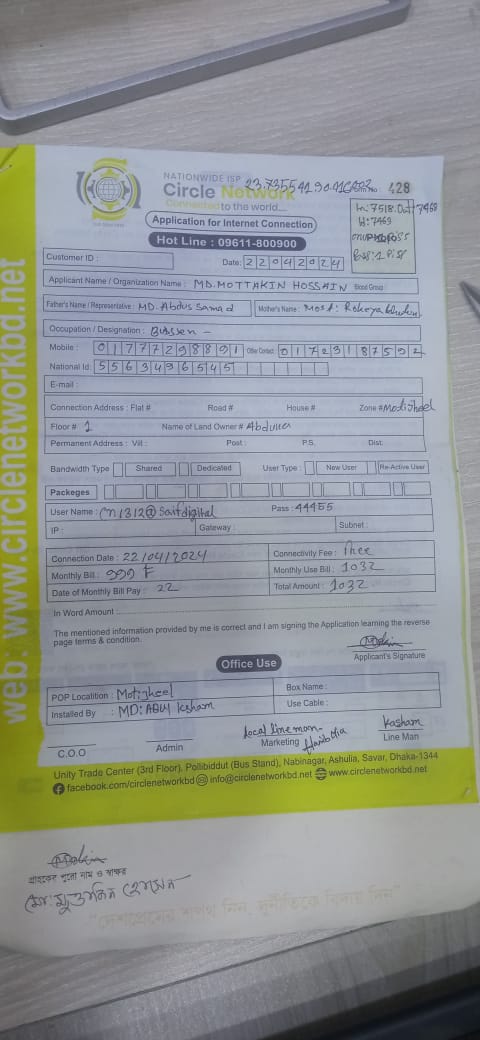 NATIONWIDE ISP
Circle Network
Connected to the world....
Form No: 428
Application for Internet Connection
Hot Line : 09611-800900
Customer ID :
Date: 22042024
Applicant Name / Organization Name : MD. MOTTAKIN HOSSAIN Blood Group :
Father's Name / Representative : MD. Abdus Samad Mother's Name : Most: Rokeya
Occupation / Designation :
Mobile : 01777298891 Other Contact 01723187592
National Id: 5563496545
E-mail :
Connection Address : Flat # Road # House # Zone # Motijheel
Floor # 1 Name of Land Owner #
Permanent Address : Vill : Post : P.S. Dist:
Bandwidth Type Shared Dedicated User Type : New User Re-Active User
Packeges
User Name : cn1312@Saifdigital Pass : 44455
IP : Gateway : Subnet :
Connection Date : 22/04/2024 Connectivity Fee :
Monthly Bill : 999 F Monthly Use Bill : 1032
Date of Monthly Bill Pay : 22 Total Amount : 1032
In Word Amount :
The mentioned information provided by me is correct and I am signing the Application learning the reverse
page terms & condition.
Applicant's Signature
Office Use
POP Locatition : Motijheel Box Name :
Installed By : MD: ABUl Kasham Use Cable :
Local line man Kasham
C.O.O Admin Marketing Line Man
Unity Trade Center (3rd Floor), Pollibiddut (Bus Stand), Nabinagar, Ashulia, Savar, Dhaka-1344
facebook.com/circlenetworkbd info@circlenetworkbd.net www.circlenetworkbd.net
web: www.circlenetworkbd.net
গ্রাহকের পুরো নাম ও স্বাক্ষর
মোঃ মুত্তাকিন হোসেন
"দেশপ্রেমের শপথ নিন, দুর্নীতিকে বিদায় দিন"